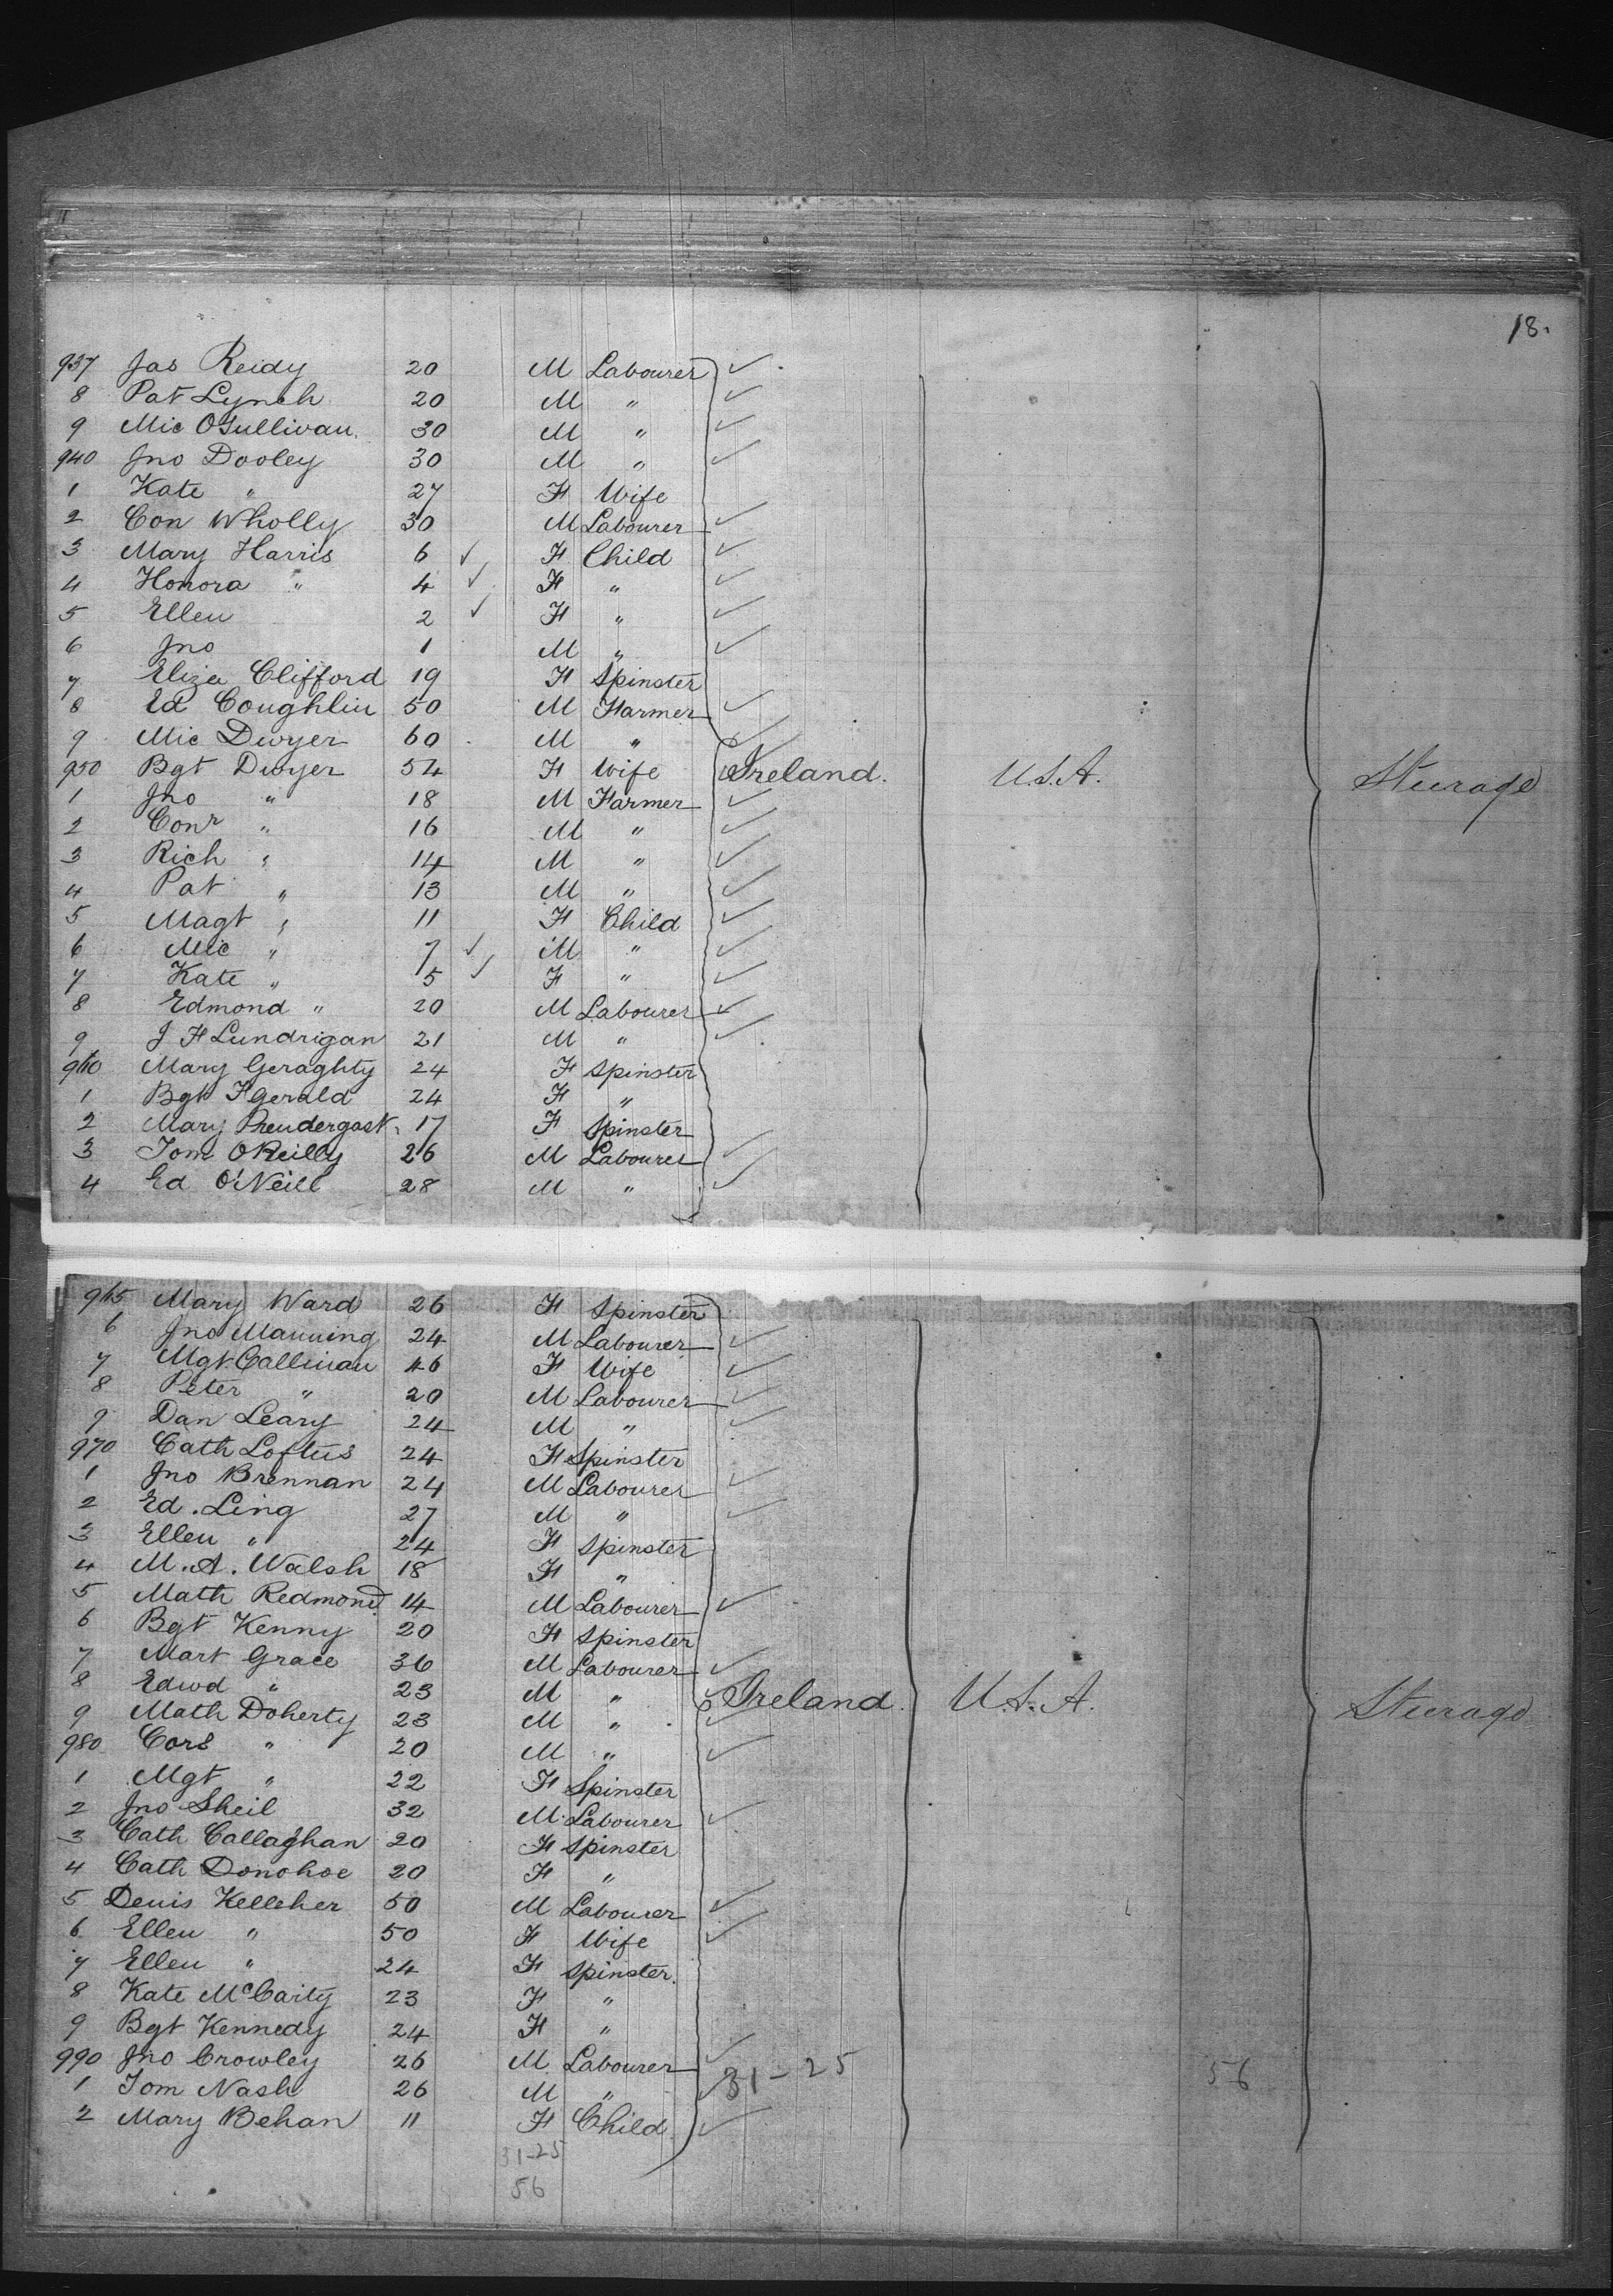 18.
937 Jas Reidy 20 M Labourer
8 Pat Lynch 20 M "
9 Mic O'Sullivan 30 M "
940 Jno Dooley 30 M "
1 Kate " 27 F Wife
2 Con Wholly 30 M Labourer
3 Mary Harris 6 F Child
4 Honora " 4 F "
5 Ellen 2 F "
6 Jno 1 M "
7 Eliza Clifford 19 F Spinster
8 Ed Coughlin 50 M Farmer
9 Mic Dwyer 60 M "
950 Bgt Dwyer 54 F Wife Ireland. U.S.A. Steerage
1 Jno " 18 M Farmer
2 Conr " 16 M "
3 Rich " 14 M "
4 Pat " 13 M "
5 Magt " 11 F Child
6 Mic " 7 M "
7 Kate " 5 F "
8 Edmond " 20 M Labourer
9 J F Lundrigan 21 M "
960 Mary Geraghty 24 F Spinster
1 Bgt FGerald 24 F "
2 Mary Prendergast 17 F Spinster
3 Tom O'Reilly 26 M Labourer
4 Ed O'Neill 28 M "
965 Mary Ward 26 F Spinster
6 Jno Manning 24 M Labourer
7 Mgt Callinan 46 F Wife
8 Peter " 20 M Labourer
9 Dan Leary 24 M "
970 Cath Loftus 24 F Spinster
1 Jno Brennan 24 M Labourer
2 Ed. Ling 27 M "
3 Ellen " 24 F Spinster
4 M. A. Walsh 18 F "
5 Math Redmond 14 M Labourer
6 Bgt Kenny 20 F Spinster
7 Mart Grace 36 M Labourer
8 Edwd " 23 M " Ireland. U.S.A. Steerage
9 Math Doherty 23 M "
980 Cors " 20 M "
1 Mgt " 22 F Spinster
2 Jno Sheil 32 M Labourer
3 Cath Callaghan 20 F Spinster
4 Cath Donohoe 20 F "
5 Denis Kelleher 50 M Labourer
6 Ellen " 50 F Wife
7 Ellen " 24 F Spinster
8 Kate McCarty 23 F "
9 Bgt Kennedy 24 F "
990 Jno Crowley 26 M Labourer
1 Tom Nash 26 M " 31-25 56
2 Mary Behan 11 F Child
31-25
56